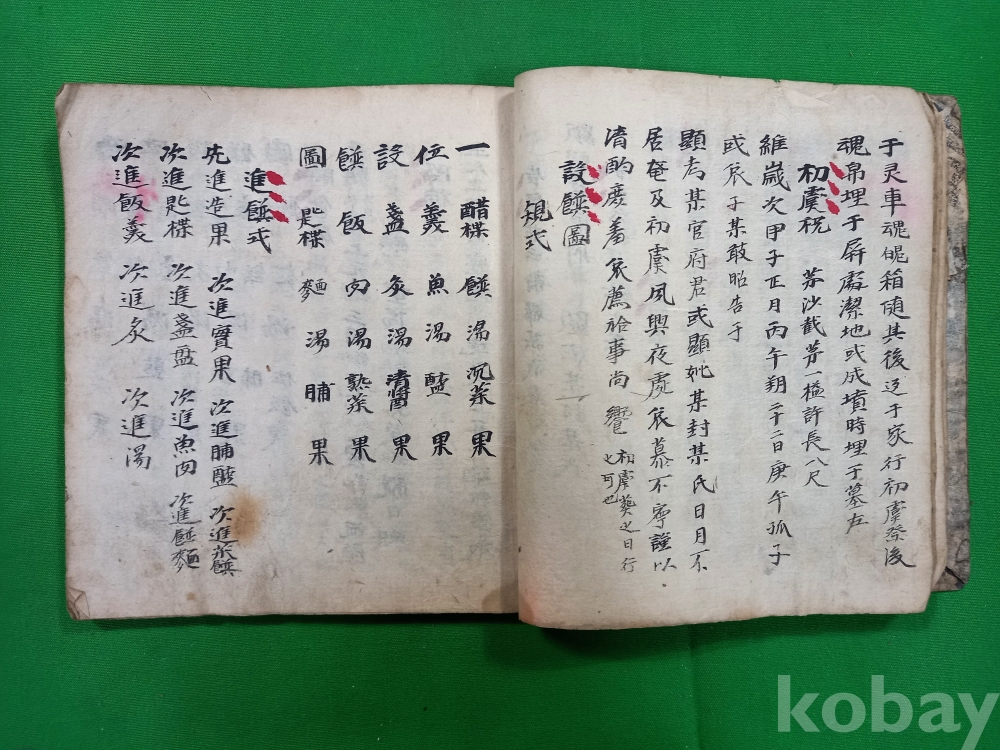 于灵車魂魄箱随其後迋于家行初虞祭後
魂帛埋于屛處潔地或成墳時埋于墓左
初虞祝 茅沙截茅一榏許長八尺
維歲次甲子正月丙午朔二十二日庚午孤子
或哀子某敢昭告于
顯考某官府君或顯妣某封某氏日月不
居奄及初虞夙興夜處哀慕不寧謹以
淸酌庶羞哀薦祫事尙 饗 初虞葬之日行
也可也
設饌圖
規式
一 醋楪 饌 湯 沉菜 果
位 羹 魚 湯 醢 果
設 盞 炙 湯 淸醬 果
饌 飯 肉 湯 熟菜 果
圖 匙楪 麵 湯 脯 果
進饌式
先進造果 次進實果 次進脯醢 次進菜饌
次進匙楪 次進盞盤 次進魚肉 次進餠麵
次進飯羹 次進炙 次進湯
kobay